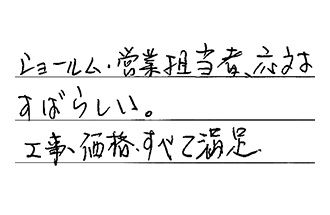 ショールム・営業担当者、応対は
すばらしい。
工事、価格、すべて満足